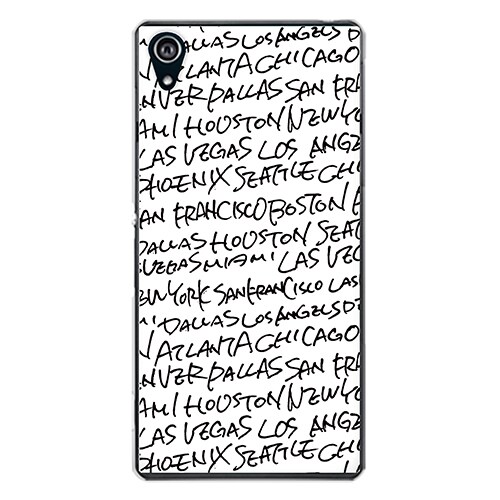 DALLAS LOS ANGELS D
ATLANTA CHICAGO
NVER DALLAS SAN FRA
AMI HOUSTON NEW YO
LAS VEGAS LOS ANGE
PHOENIX SEATTLE CHI
AN FRANCISCO BOSTON
DALLAS HOUSTON SEAT
VEGAS MIAMI LAS VEG
EW YORK SAN FRANCISCO LAS
MI DALLAS LOS ANGELS D
ATLANTA CHICAGO
NVER DALLAS SAN FRA
AMI HOUSTON NEW YO
LAS VEGAS LOS ANGE
PHOENIX SEATTLE CHI